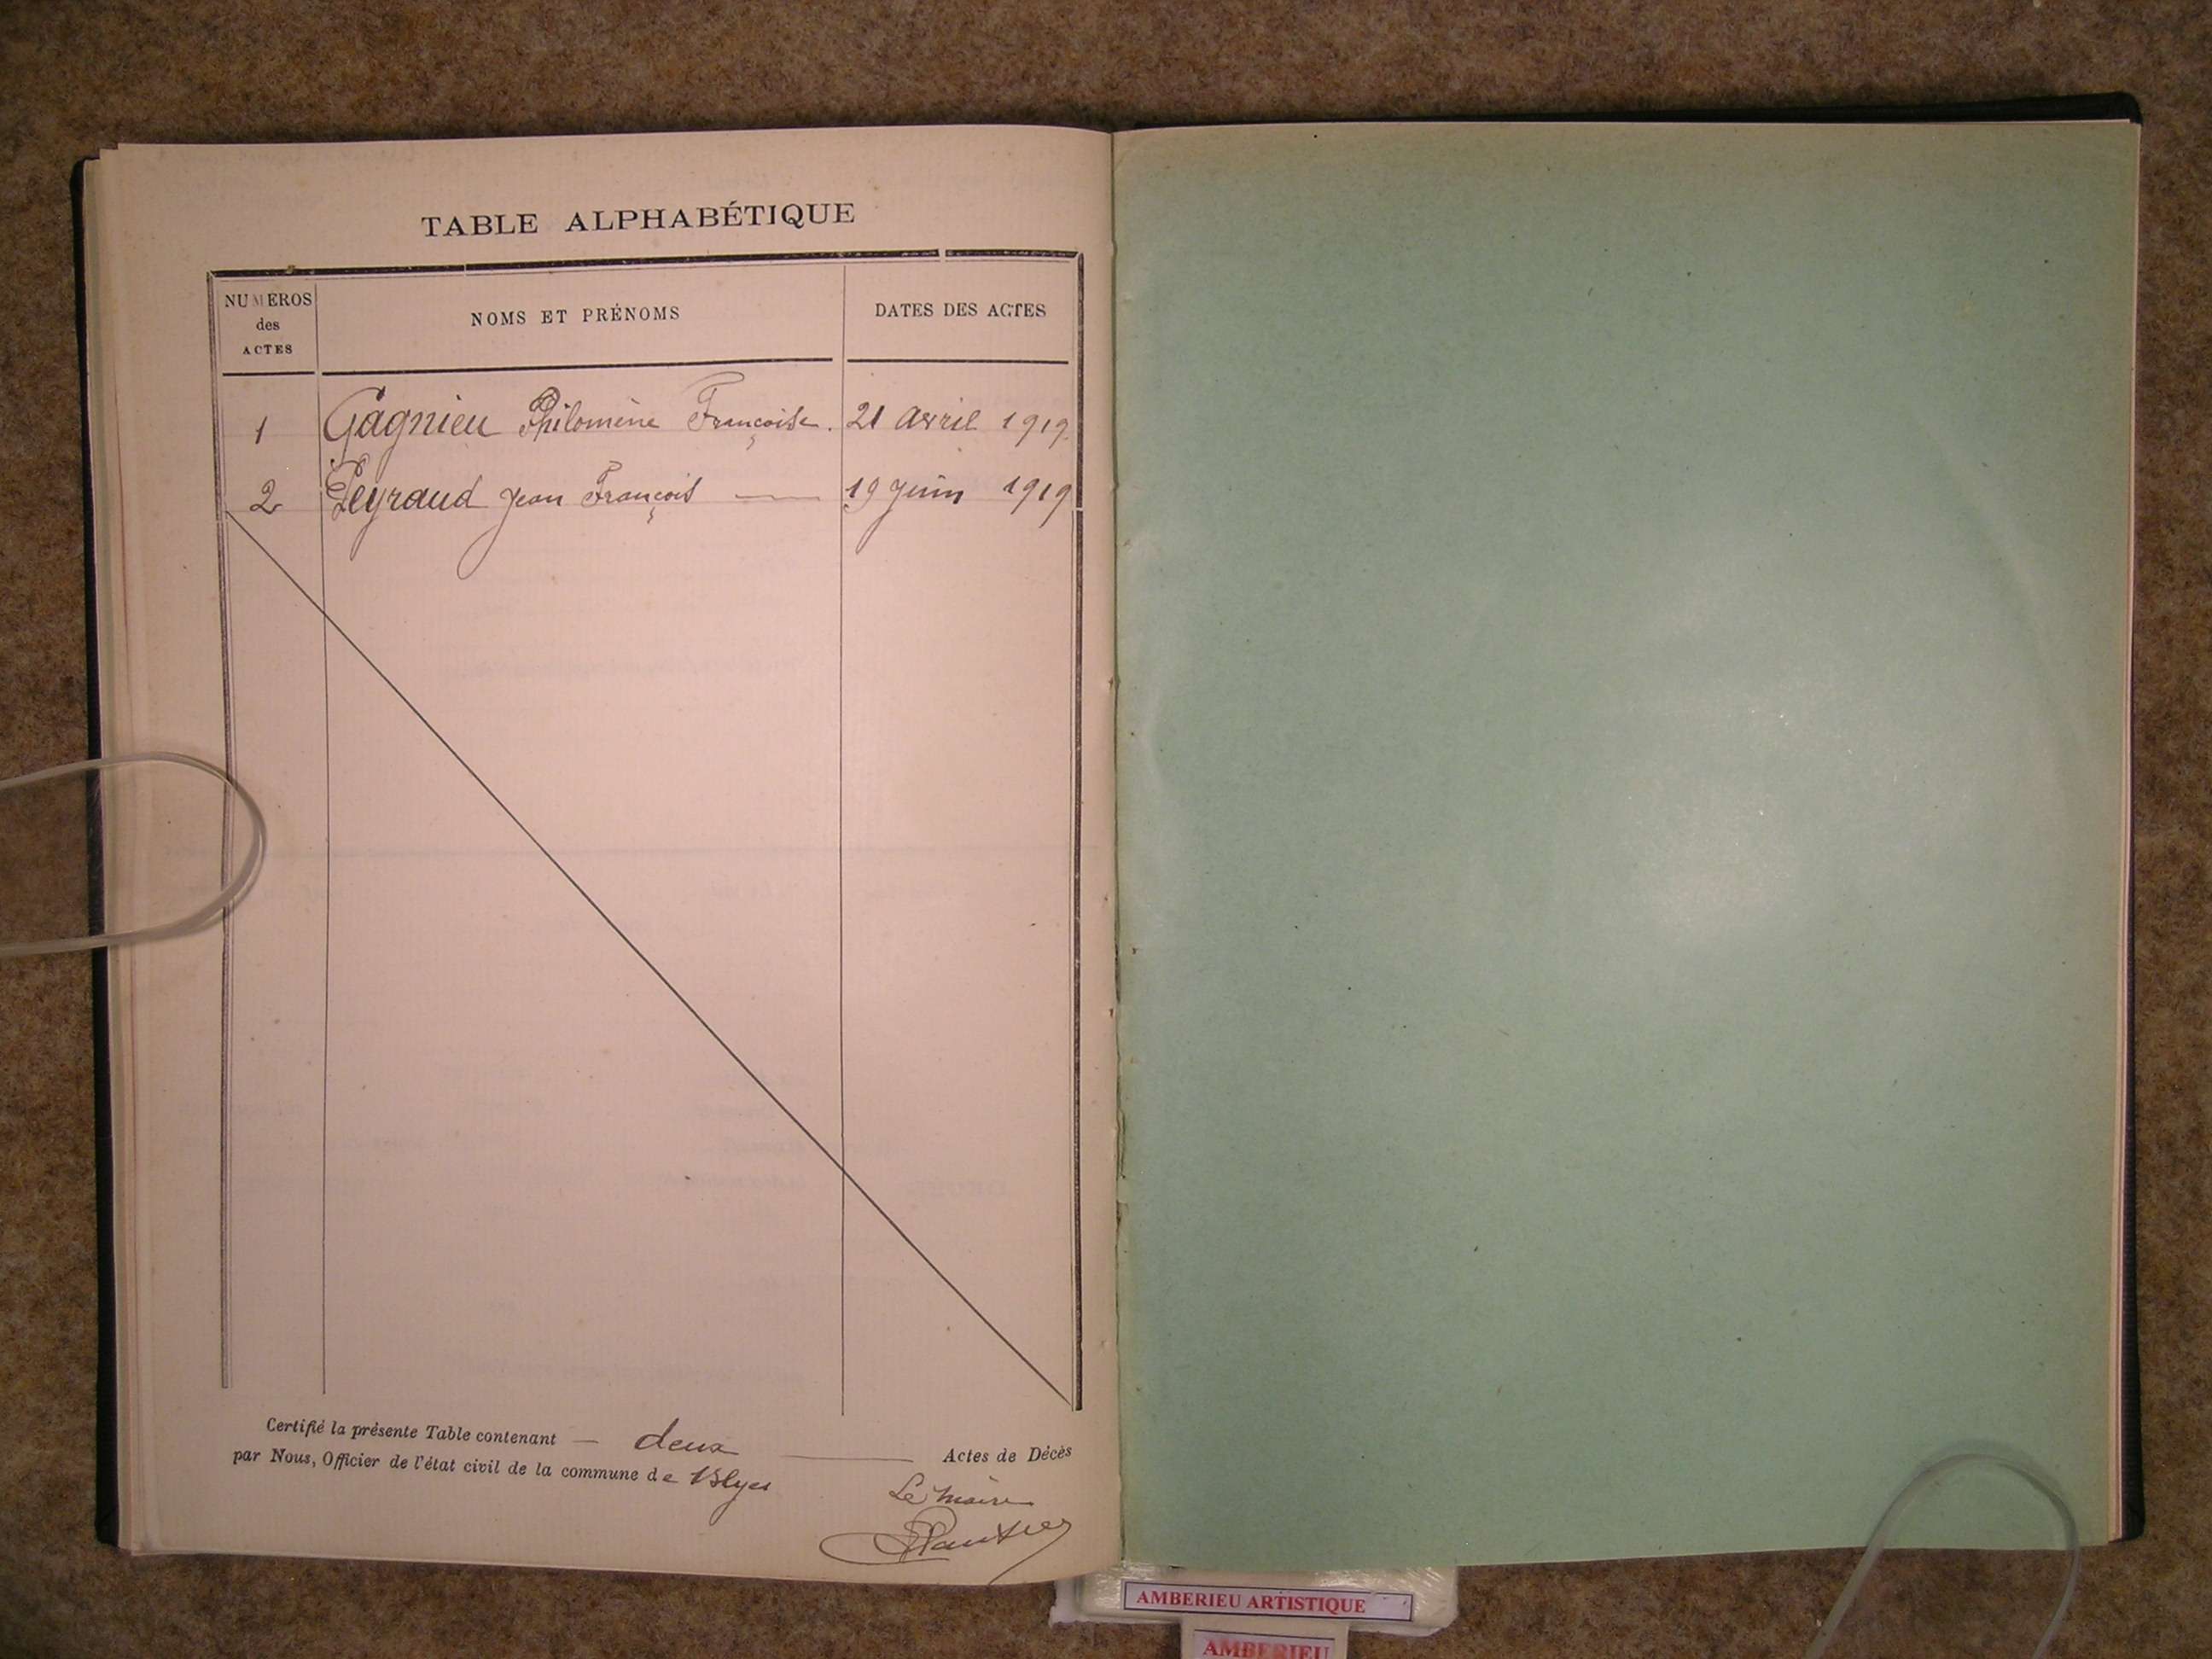 TABLE ALPHABÉTIQUE
NUMEROS
des
ACTES
NOMS ET PRÉNOMS
DATES DES ACTES
1 Gagnieu Philomène Françoise. 21 avril 1919.
2 Peyraud Jean François — 19 Juin 1919
Certifié la présente Table contenant — deux — Actes de Décès
par Nous, Officier de l'état civil de la commune de Blyes
Le Maire
AMBERIEU ARTISTIQUE
AMBERIEU